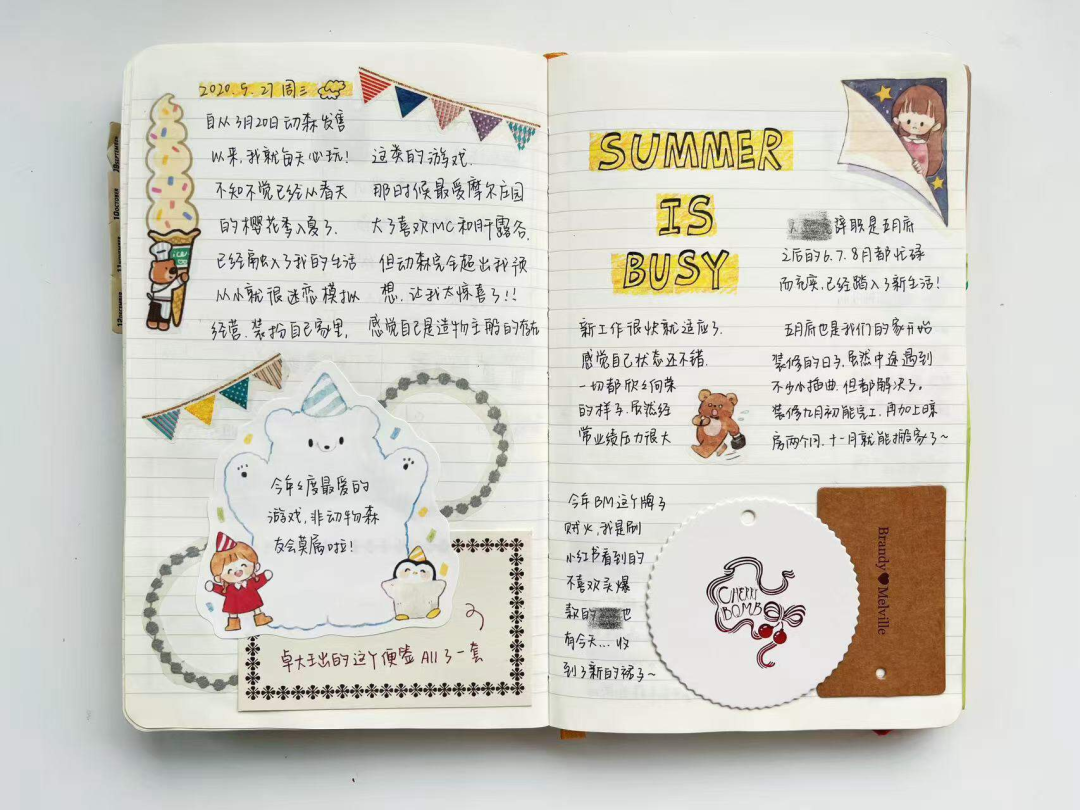 2020.5.27 周三
自从3月20日动森发售
以来,我就每天必玩!
不知不觉已经从春天
的樱花季入夏了.
已经融入了我的生活
从小就很迷恋模拟
经营.装扮自己家里,
这类的游戏.
那时候最爱摩尔庄园
大了喜欢MC和星露谷.
但动森完全超出我预
想.让我太惊喜了!!
感觉自己是造物主般的存在
今年年度最爱的
游戏,非动物森
友会莫属啦!
卓大王出的这个便签All了一套
SUMMER
IS
BUSY
辞职是五月底
之后的6.7.8月都忙碌
而充实,已经踏入了新生活!
新工作很快就适应了.
感觉自己状态还不错.
一切都欣欣向荣
的样子.虽然经
常业绩压力很大
五月底也是我们的家开始
装修的日子.虽然中途遇到
不少小插曲.但都解决了。
装修九月初能完工,再加上晾
房两个月.十一月就能搬家了~
今年BM这个牌子
贼火,我是刷
小红书看到的
不喜欢买爆
款的 也
有今天...收
到了新的裙子~
CHERRY
BOMB
Brandy Melville